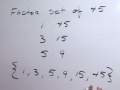 Factor set of 45
1 45
3 15
5 9
{1, 3, 5, 9, 15, 45}